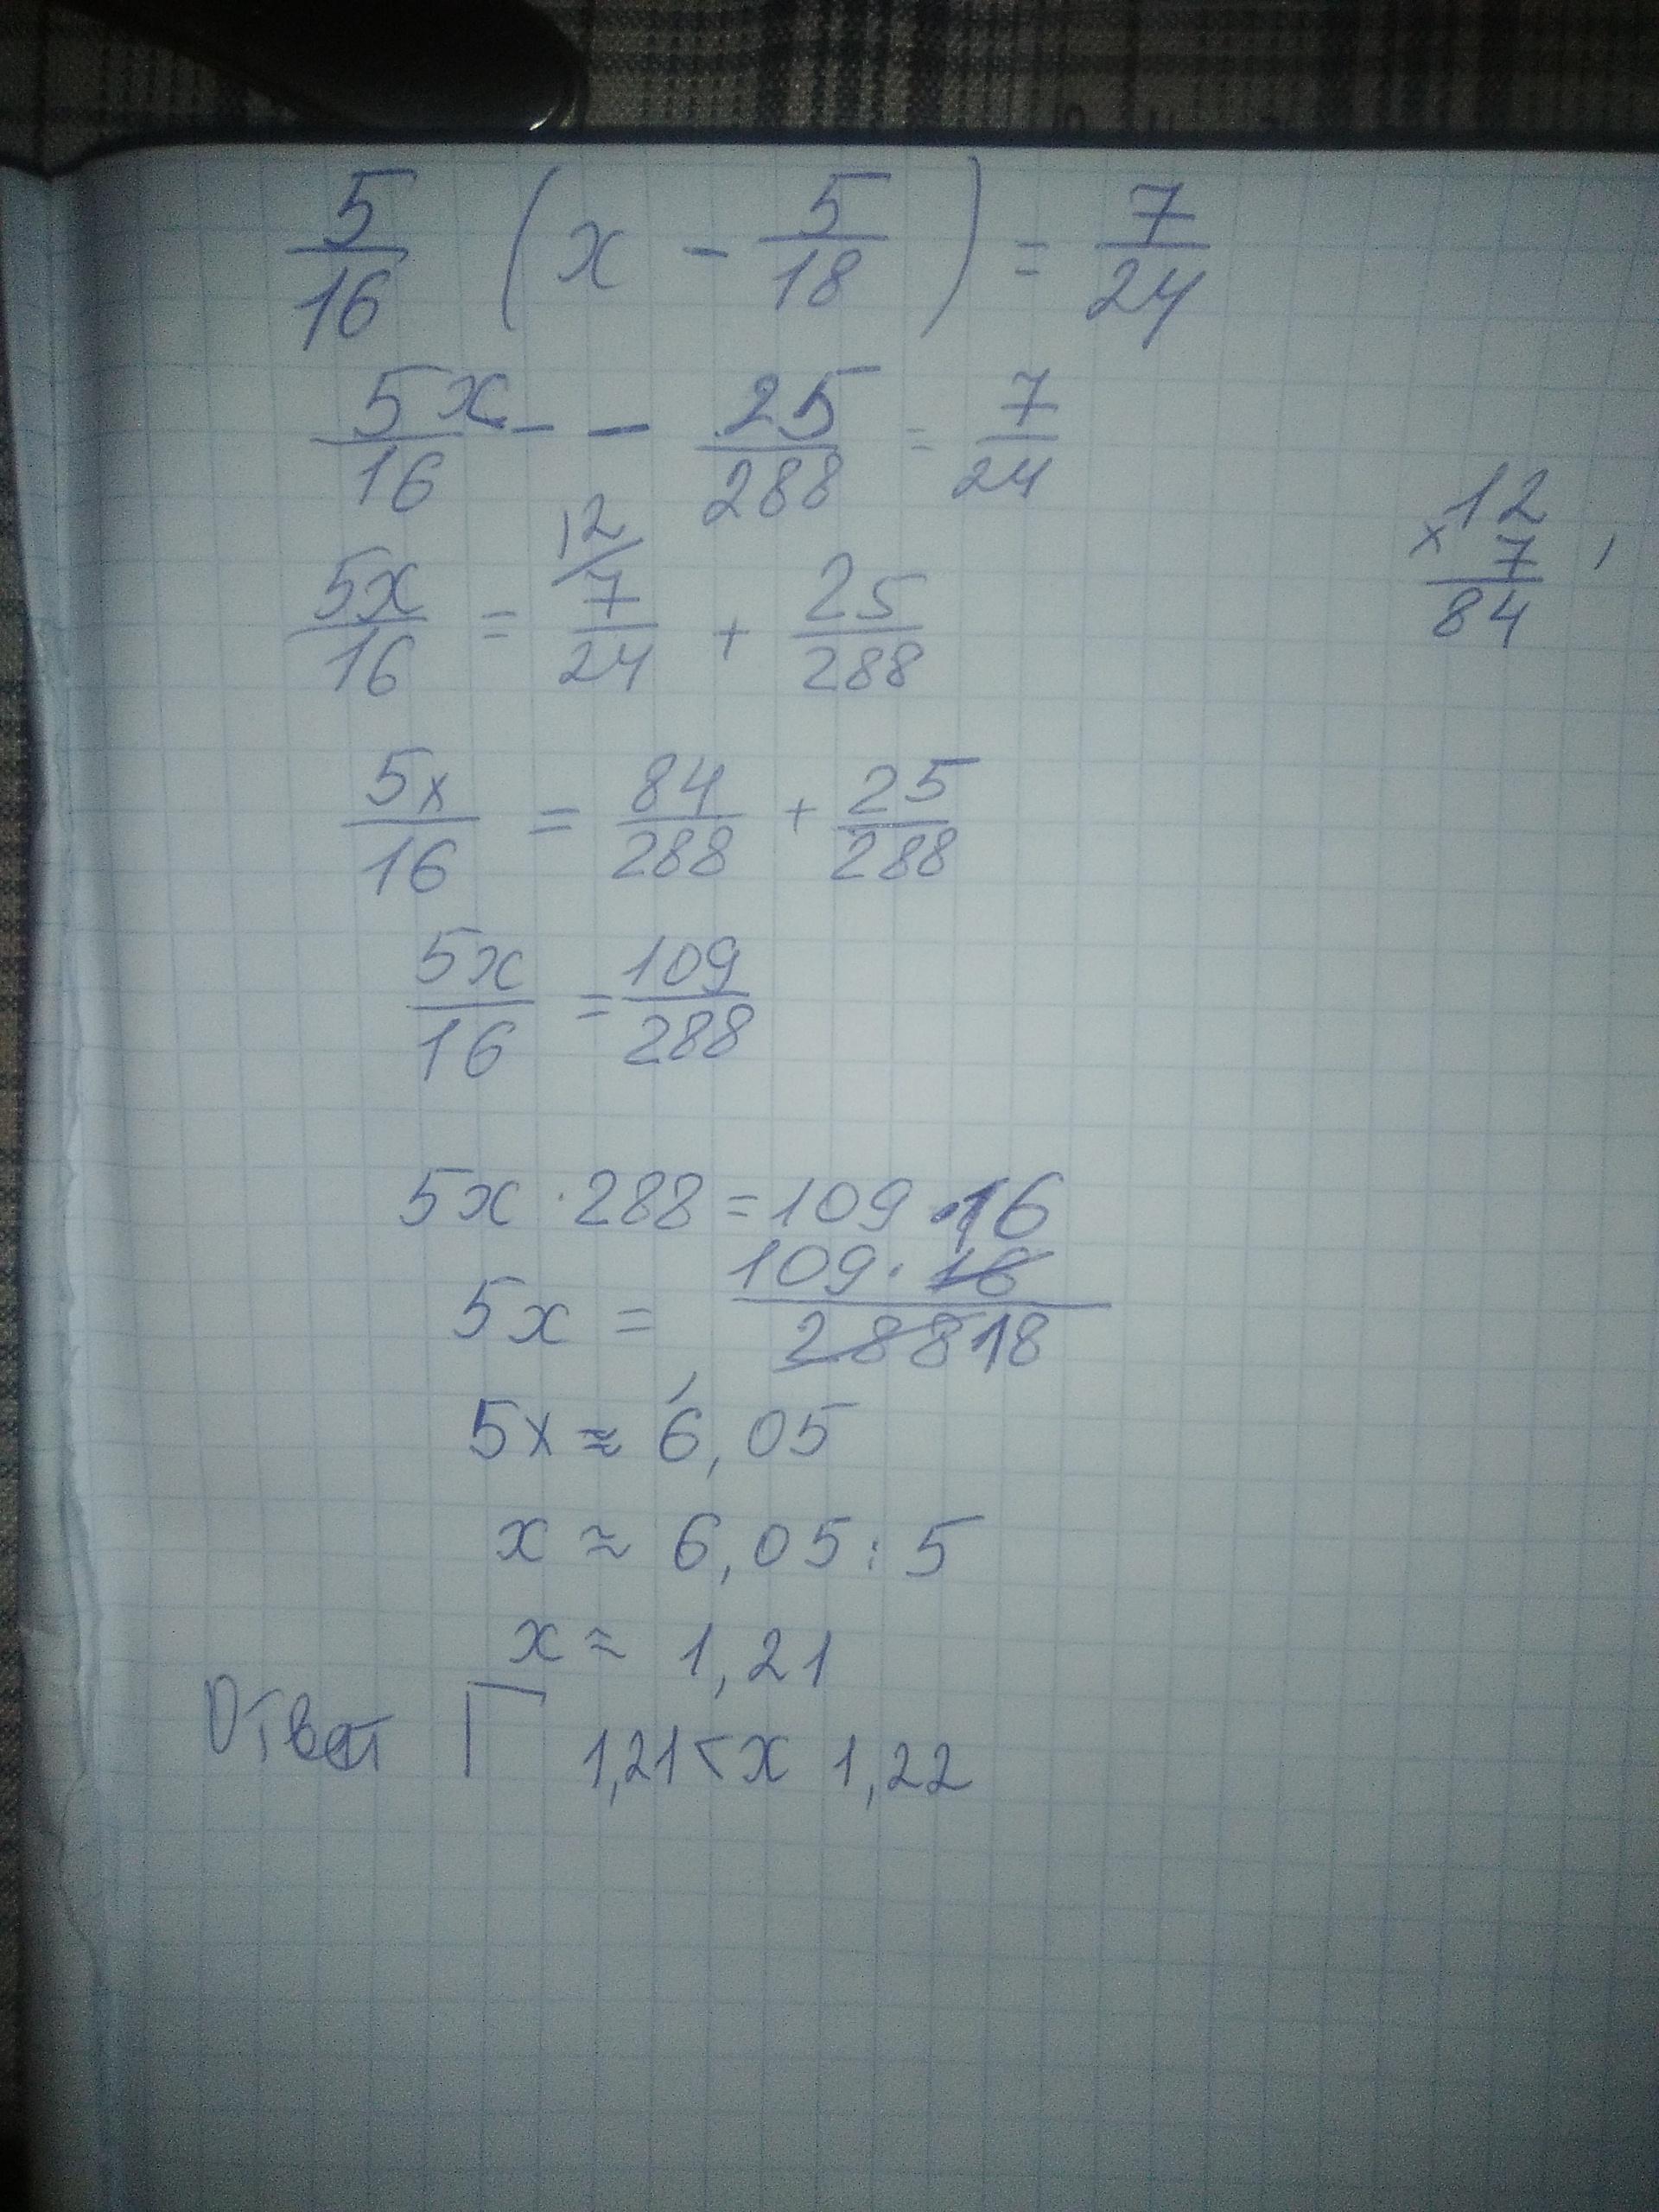 5/16 (x - 5/18) = 7/24
5x/16 - - 25/288 = 7/24
12
× 7
84
5x/16 = 12/ 7/24 + 25/288
5x/16 = 84/288 + 25/288
5x/16 = 109/288
5x · 288 = 109 · 16
5x = 109 · 16/288 18
5x ≈ 6,05
x ≈ 6,05 : 5
x ≈ 1,21
Ответ Г 1,21 < x 1,22